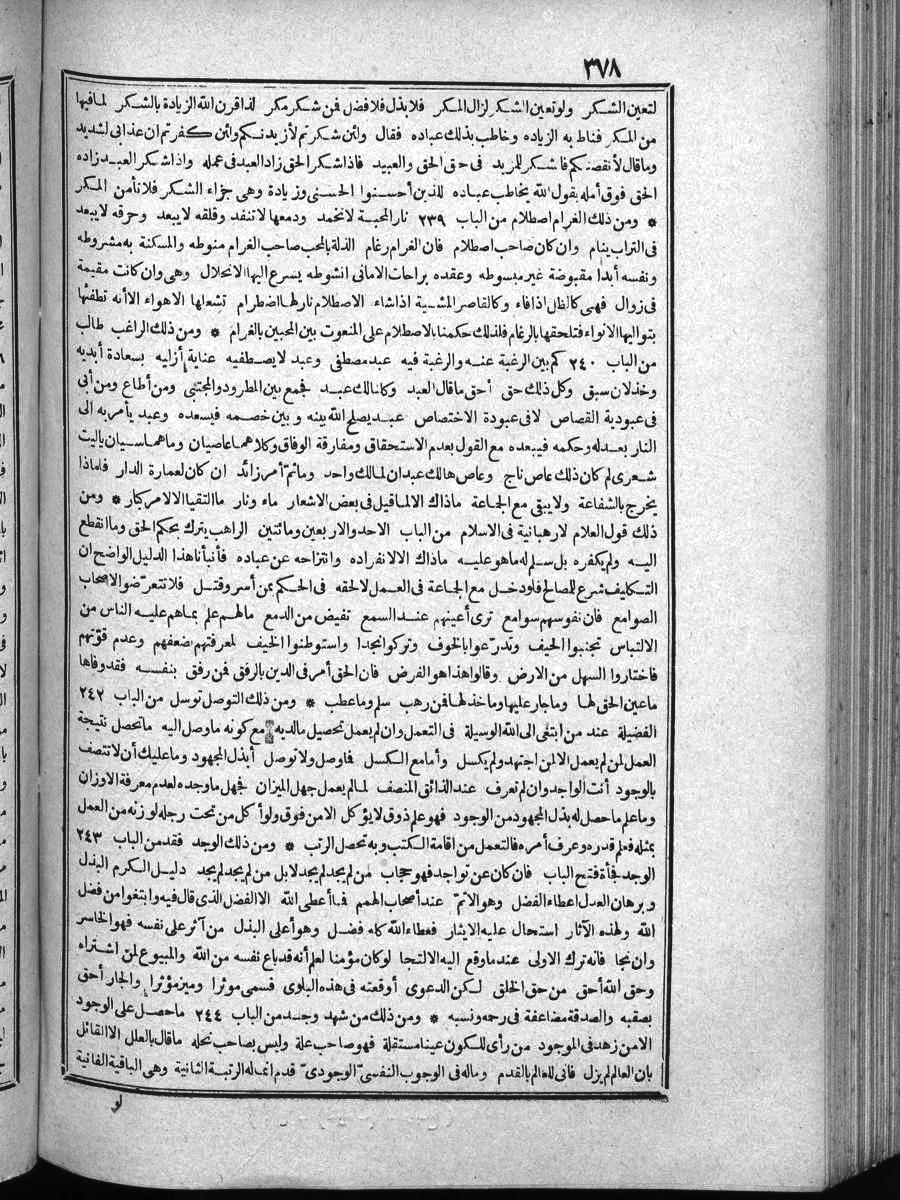 ٣٧٨
لتعين الشكر ولو تعين الشكر لزال المكر فلا بذل فلا فضل فمن شكر مكر لذا قرن الله الزيادة بالشكر لما فيها
من المكر فناط به الزياده وخاطب بذلك عباده فقال ولئن شكرتم لأزيدنكم ولئن كفرتم ان عذابي لشديد
وما قال لأنقصنكم فاشكر للمزيد فى حق الحق والعبيد فاذا شكر الحق زاد العبد فى عمله واذا شكر العبد زاده
الحق فوق أمله بقول الله يخاطب عباده للذين أحسنوا الحسنى وزيادة وهى جزاء الشكر فلا تأمن المكر
* ومن ذلك الغرام اصطلام من الباب ٢٣٩ نار المحبة لا تخمد ودمعها لا تنفد وقلقه لا يبعد وحرقه لا يبعد
فى التراب ينام وان كان صاحب اصطلام فان الغرام رغام الذلة بالمحب صاحب الغرام منوطه والمسكنة به مشروطه
ونفسه أبدا مقبوضة غير مبسوطه وعقده براحات الامانى انشوطه يسرع اليها الانحلال وهى وان كانت مقيمة
فى زوال فهى كالظل اذا فاء وكالقاصر المشية اذا شاء الاصطلام نار لها اضطرام تشعلها الاهواء الا أنه تطفئها
بتواليها الانواء فتلحقها بالرغام فلذلك حكمنا بالاصطلام على المنعوت بين المحبين بالغرام * ومن ذلك الراغب طالب
من الباب ٢٤٠ كم بين الرغبة عنه والرغبة فيه عبد مصطفى وعبد لا يصطفيه عناية أزليه بسعادة أبديه
وخذلان سبق وكل ذلك حق أحق ما قال العبد وكلنا لك عبد فجمع بين المطرود والمجتبى ومن أطاع ومن أبى
فى عبودية القصاص لا فى عبودة الاختصاص عبد يصلح الله بينه وبين خصمه فيسعده وعبد يأمر به الى
النار بعدله وحكمه فيبعده مع القول بعدم الاستحقاق ومفارقة الوفاق وكلاهما عاصيان وما هما سيان ياليت
شعرى لم كان ذلك عاص ناج وعاص هالك عبدان لمالك واحد وما ثم أمر زائد ان كان لعمارة الدار فلماذا
يخرج بالشفاعة ولا يبقى مع الجماعة ما ذاك الا لما قيل فى بعض الاشعار ماء ونار ما التقيا الا لامر كبار * ومن
ذلك قول العلام لا رهبانية فى الاسلام من الباب الاحد والاربعين ومائتين الراهب يترك بحكم الحق وما انقطع
اليه ولم يكفره بل سلم له ما هو عليه ما ذاك الا لانفراده وانتزاحه عن عباده فأنبأنا هذا الدليل الواضح ان
التكليف شرع للمصالح فلو دخل مع الجماعة فى العمل لالحقه فى الحكم بمن أسر وقتل فلا تتعرضوا لاصحاب
الصوامع فان نفوسهم سوامع ترى أعينهم عند السمع تفيض من الدمع مالهم علم بما هم عليه الناس من
الالتباس تجنبوا الحيف وتدرعوا بالخوف وتركوا نجدا واستوطنوا الخيف لمعرفتهم بضعفهم وعدم قوتهم
فاختاروا السهل من الارض وقالوا هذا هو الفرض فان الحق أمر فى الدين بالرفق فمن رفق بنفسه فقد وفاها
ما عين الحق لها وما جار عليها وما خذلها فمن رهب سلم وما عطب * ومن ذلك التوصل توسل من الباب ٢٤٢
الفضيلة عند من ابتغى الى الله الوسيلة فى التعمل وان لم يعمل تحصيل مالديه مع كونه ما وصل اليه ما تحصل نتيجة
العمل لمن لم يعمل الا لمن اجتهد ولم يكسل وأما مع الكسل فما وصل ولا توصل أبذل المجهود وما عليك أن لا تتصف
بالوجود أنت الواجد وان لم تعرف عند الذائق المنصف لما لم يعمل جهل الميزان فجهل ما وجده لعدم معرفة الاوزان
وما علم ما حصل له بذل المجهود من الوجود فهو علم ذوق لا يؤكل الا من فوق ولو أكل من تحت رجله لوزنه من العمل
بمثله فعلم قدره وعرف أمره فالتعمل من اقامة الكتب وبه تحصل الرتب * ومن ذلك الوجد فقد من الباب ٢٤٣
الوجد فجأة فتح الباب فان كان عن تواجد فهو حجاب من لم يجد لم يجد لا بل من لم يجد لم يجد دليل الكرم البذل
وبرهان العدل اعطاء الفضل وهو الاتم عند أصحاب الهمم فما أعطى الله الا الفضل الذى قال فيه وابتغوا من فضل
الله ولهذه الآثار استحال عليه الايثار فعطاء الله كله فضل وهو أعلى البذل من آثر على نفسه فهو الخاسر
وان نجا فانه ترك الاولى عند ما وقع اليه الالتجا لو كان مؤمنا لعلم أنه قد باع نفسه من الله والمبيوع لمن اشتراه
وحق الله أحق من حق الخلق لكن الدعوى أوقعته فى هذه البلوى فسمى موثرا وميز مؤثرا والجار أحق
بصقبه والصدقة مضاعفة فى رحمه ونسبه * ومن ذلك من شهد وجد من الباب ٢٤٤ ما حصل على الوجود
الا من زهد فى الموجود من رأى للكون عينا مستقلة فهو صاحب علة وليس بصاحب نحله ما قال بالعلل الا القائل
بان العالم لم يزل فانى للعالم بالقدم وماله فى الوجوب النفسىّ الوجودىّ قدم انما له الرتبة الثانية وهى الباقية الفانية
لو